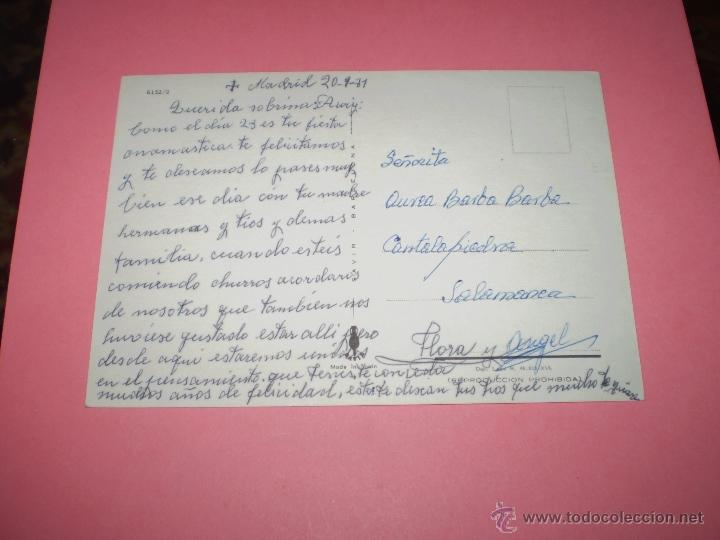 6152/2
+ Madrid 20-9-71
Querida sobrina Auri:
Como el dia 23 es tu fiesta
onomastica te felicitamos
y te deseamos lo pases muy
bien ese dia con tu madre
hermanas y tios y demas
familia, cuando esteis
comiendo churros acordaros
de nosotros que tambien nos
huviese gustado estar alli pero
desde aqui estaremos unidos
en el pensamiento. que
muchos años de felicidad, esto te desean tus tios que mucho te quiere
Señorita
Aurea Barba Barba
Cantalapiedra
Salamanca
Flora y Angel
Made in Spain
(REPRODUCCION PROHIBIDA)
todocoleccion
www.todocoleccion.net